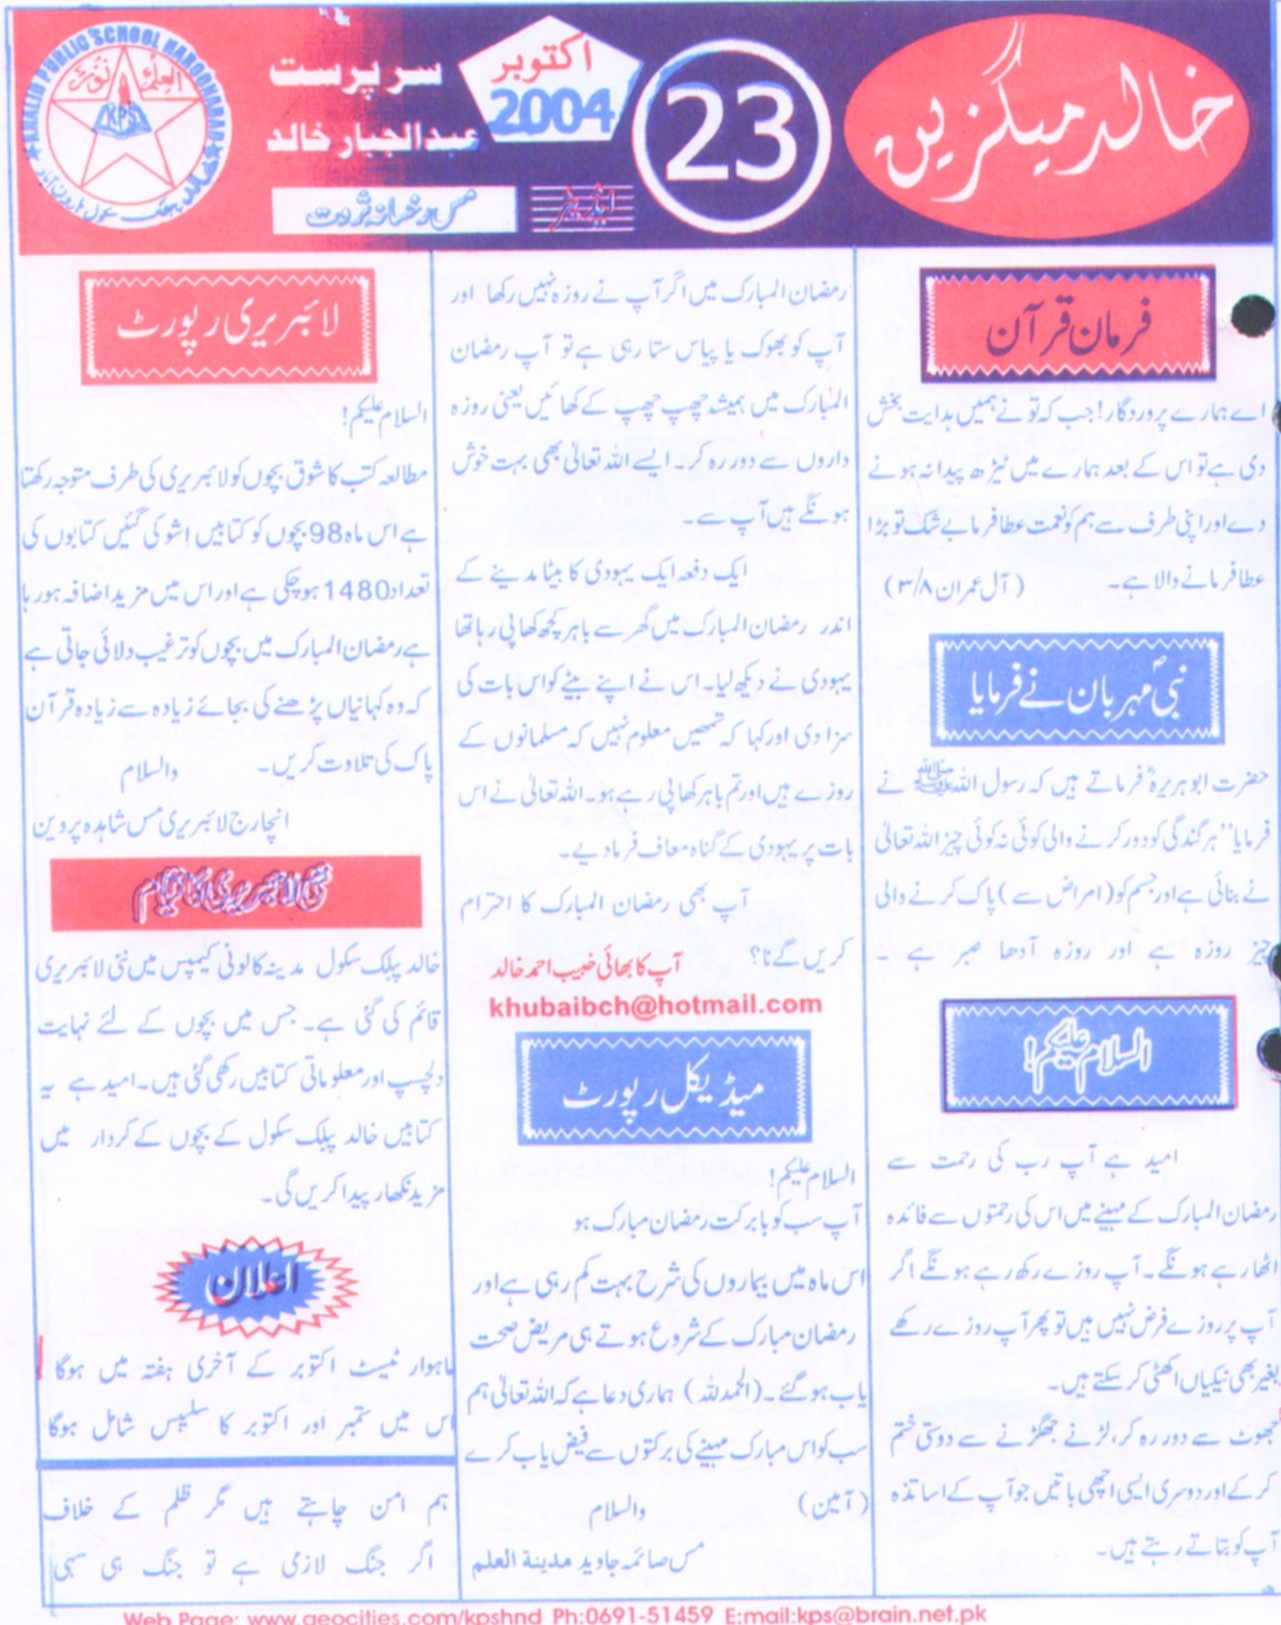 خالد میگزین
23
اکتوبر
2004
سرپرست
عبدالجبار خالد
ایڈیٹر
مس رخسانہ ثروت
KHALID PUBLIC SCHOOL HAROONABAD
العلم نور
KPS
فرمان قرآن
اے ہمارے پروردگار! جب کہ تو نے ہمیں ہدایت بخش
دی ہے تو اس کے بعد ہمارے میں ٹیڑھ پیدا نہ ہونے
دے اور اپنی طرف سے ہم کو نعمت عطا فرما بے شک تو بڑا
عطا فرمانے والا ہے۔ (آل عمران ۳/۸)
نبیؐ مہربان نے فرمایا
حضرت ابو ہریرہؓ فرماتے ہیں کہ رسول اللہ ﷺ نے
فرمایا ’’ہر گندگی کو دور کرنے والی کوئی نہ کوئی چیز اللہ تعالیٰ
نے بنائی ہے اور جسم کو (امراض سے) پاک کرنے والی
چیز روزہ ہے اور روزہ آدھا صبر ہے ۔
السلام علیکم!
امید ہے آپ رب کی رحمت سے
رمضان المبارک کے مہینے میں اس کی رحمتوں سے فائدہ
اٹھا رہے ہونگے۔ آپ روزے رکھ رہے ہونگے اگر
آپ پر روزے فرض نہیں ہیں تو پھر آپ روزے رکھے
بغیر بھی نیکیاں اکٹھی کر سکتے ہیں۔
جھوٹ سے دور رہ کر، لڑنے جھگڑنے سے دوستی ختم
کر کے اور دوسری ایسی اچھی باتیں جو آپ کے اساتذہ
آپ کو بتاتے رہتے ہیں۔
رمضان المبارک میں اگر آپ نے روزہ نہیں رکھا اور
آپ کو بھوک یا پیاس ستا رہی ہے تو آپ رمضان
المبارک میں ہمیشہ چھپ چھپ کے کھائیں یعنی روزہ
داروں سے دور رہ کر۔ ایسے اللہ تعالیٰ بھی بہت خوش
ہونگے ہیں آپ سے۔
ایک دفعہ ایک یہودی کا بیٹا مدینے کے
اندر رمضان المبارک میں گھر سے باہر کچھ کھا پی رہا تھا
یہودی نے دیکھ لیا۔ اس نے اپنے بیٹے کو اس بات کی
سزا دی اور کہا کہ تمھیں معلوم نہیں کہ مسلمانوں کے
روزے ہیں اور تم باہر کھا پی رہے ہو۔ اللہ تعالیٰ نے اس
بات پر یہودی کے گناہ معاف فرما دیے۔
آپ بھی رمضان المبارک کا احترام
کریں گے نا؟ آپ کا بھائی خبیب احمد خالد
khubaibch@hotmail.com
میڈیکل رپورٹ
السلام علیکم!
آپ سب کو بابرکت رمضان مبارک ہو
اس ماہ میں بیماروں کی شرح بہت کم رہی ہے اور
رمضان مبارک کے شروع ہوتے ہی مریض صحت
یاب ہو گئے۔ (الحمدللہ) ہماری دعا ہے کہ اللہ تعالیٰ ہم
سب کو اس مبارک مہینے کی برکتوں سے فیض یاب کرے
(آمین) والسلام
مس صائمہ جاوید مدینۃ العلم
لائبریری رپورٹ
السلام علیکم!
مطالعہ کتب کا شوق بچوں کو لائبریری کی طرف متوجہ رکھتا
ہے اس ماہ 98 بچوں کو کتابیں اشو کی گئیں کتابوں کی
تعداد 1480 ہو چکی ہے اور اس میں مزید اضافہ ہو رہا
ہے رمضان المبارک میں بچوں کو ترغیب دلائی جاتی ہے
کہ وہ کہانیاں پڑھنے کی بجائے زیادہ سے زیادہ قرآن
پاک کی تلاوت کریں۔ والسلام
انچارج لائبریری مس شاہدہ پروین
نئی لائبریری کا قیام
خالد پبلک سکول مدینہ کالونی کیمپس میں نئی لائبریری
قائم کی گئی ہے۔ جس میں بچوں کے لئے نہایت
دلچسپ اور معلوماتی کتابیں رکھی گئی ہیں۔ امید ہے یہ
کتابیں خالد پبلک سکول کے بچوں کے کردار میں
مزید نکھار پیدا کریں گی۔
اعلان
ماہوار ٹیسٹ اکتوبر کے آخری ہفتہ میں ہوگا
اس میں ستمبر اور اکتوبر کا سلیبس شامل ہوگا
ہم امن چاہتے ہیں مگر ظلم کے خلاف
اگر جنگ لازمی ہے تو جنگ ہی سہی
Web Page: www.geocities.com/kpshnd Ph:0691-51459 E:mail:kps@brain.net.pk